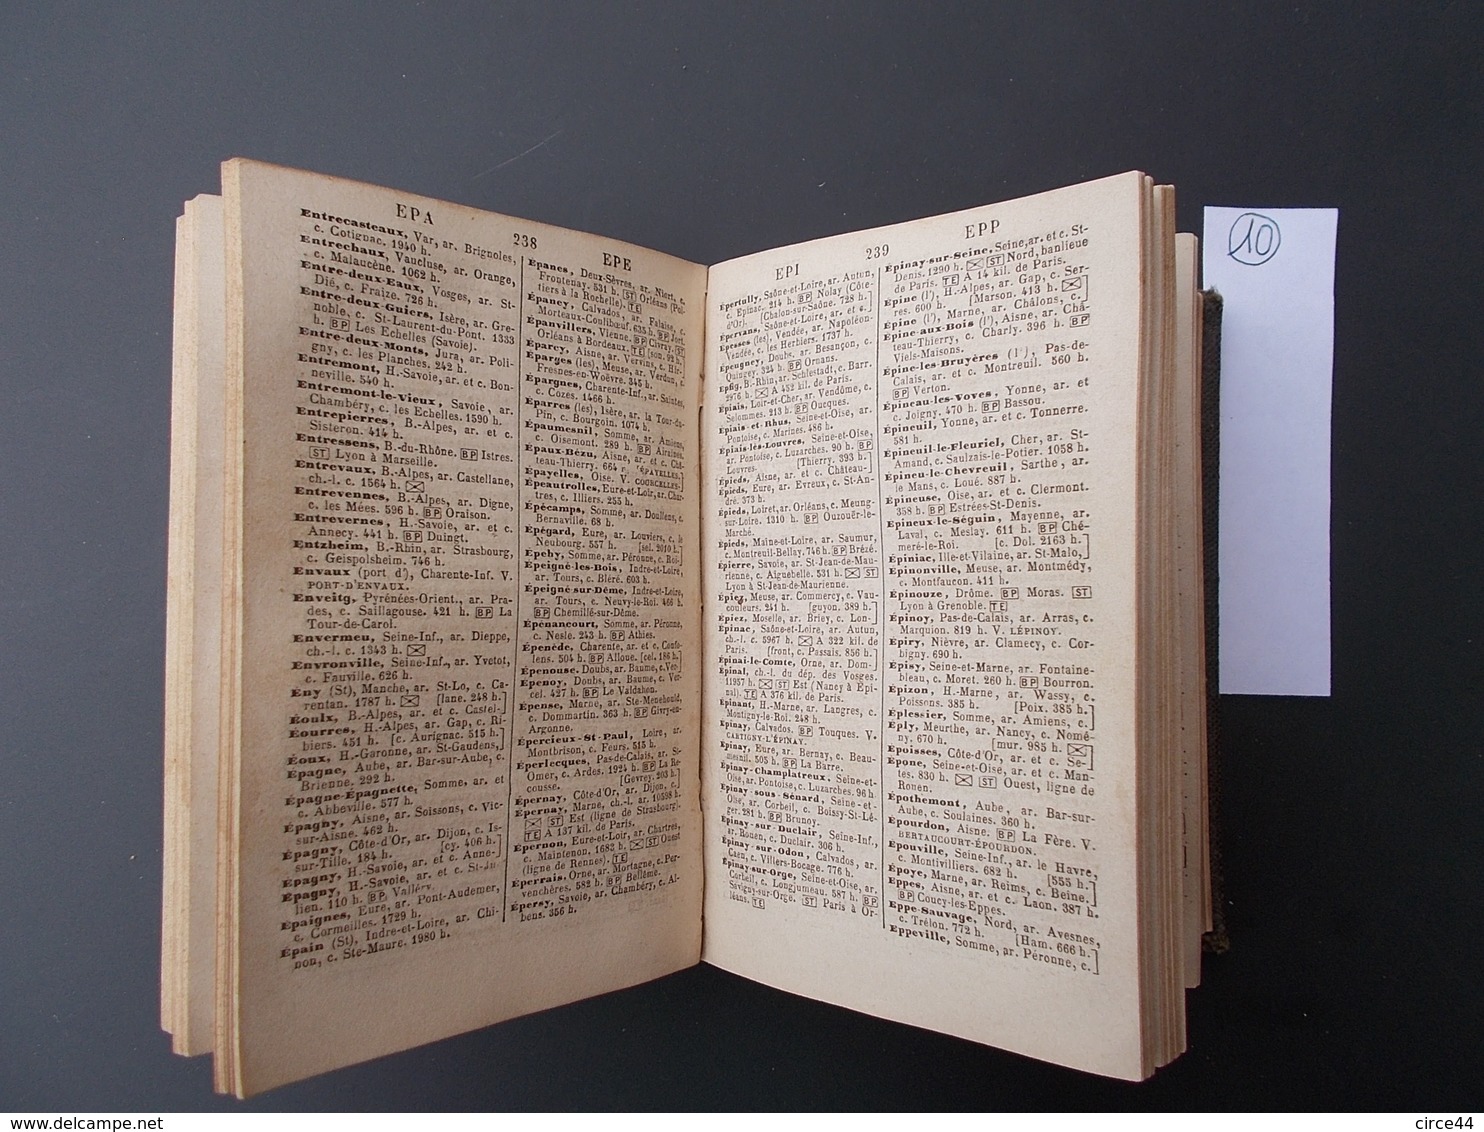 EPA
238
EPE
Entrecasteaux, Var, ar. Brignoles,
c. Cotignac. 1940 h.
Entrechaux, Vaucluse, ar. Orange,
c. Malaucène. 1062 h.
Entre-deux-Eaux, Vosges, ar. St-
Dié, c. Fraize. 726 h.
Entre-deux-Guiers, Isère, ar. Gre-
noble, c. St-Laurent-du-Pont. 1333
h. BP Les Echelles (Savoie).
Entre-deux-Monts, Jura, ar. Poli-
gny, c. les Planches. 242 h.
Entremont, H.-Savoie, ar. et c. Bon-
neville. 540 h.
Entremont-le-Vieux, Savoie, ar.
Chambéry, c. les Echelles. 1590 h.
Entrepierres, B.-Alpes, ar. et c.
Sisteron. 414 h.
Entressens, B.-du-Rhône. BP Istres.
ST Lyon à Marseille.
Entrevaux, B.-Alpes, ar. Castellane,
ch.-l. c. 1564 h.
Entrevennes, B.-Alpes, ar. Digne,
c. les Mées. 596 h. BP Oraison.
Entrevernes, H.-Savoie, ar. et c.
Annecy. 441 h. BP Duingt.
Entzheim, B.-Rhin, ar. Strasbourg,
c. Geispolsheim. 746 h.
Envaux (port d'), Charente-Inf. V.
PORT-D'ENVAUX.
Enveitg, Pyrénées-Orient., ar. Pra-
des, c. Saillagouse. 421 h. BP La
Tour-de-Carol.
Envermeu, Seine-Inf., ar. Dieppe,
ch.-l. c. 1343 h.
Envronville, Seine-Inf., ar. Yvetot,
c. Fauville. 626 h.
Ény (St), Manche, ar. St-Lo, c. Ca-
rentan. 1787 h. [lane. 248 h.]
Éoulx, B.-Alpes, ar. et c. Castel-]
Éourres, H.-Alpes, ar. Gap, c. Ri-
biers. 451 h. [c. Aurignac. 515 h.]
Éoux, H.-Garonne, ar. St-Gaudens,]
Épagne, Aube, ar. Bar-sur-Aube, c.
Brienne. 292 h.
Épagne-Épagnette, Somme, ar. et
c. Abbeville. 577 h.
Épagny, Aisne, ar. Soissons, c. Vic-
sur-Aisne. 462 h.
Épagny, Côte-d'Or, ar. Dijon, c. Is-
sur-Tille. 184 h. [cy. 406 h.]
Épagny, H.-Savoie, ar. et c. Anne-]
Épagny, H.-Savoie, ar. et c. St-Ju
lien. 110 h. BP Valléry.
Épaignes, Eure, ar. Pont-Audemer,
c. Cormeilles. 1729 h.
Épain (St), Indre-et-Loire, ar. Chi-
non, c. Ste-Maure. 1980 h.
Épanes, Deux-Sèvres, ar. Niort, c.
Frontenay. 531 h. ST Orléans (Poi-
tiers à la Rochelle). TE
Épaney, Calvados, ar. Falaise, c.
Morteaux-Coulibœuf. 635 h. BP Jort.
Épanvillers, Vienne. BP Civray. ST
Orléans à Bordeaux. TE [son. 99 h.]
Éparcy, Aisne, ar. Vervins, c. Hir-
Éparges (les), Meuse, ar. Verdun, c.
Fresnes-en-Woëvre. 345 h.
Épargnes, Charente-Inf., ar. Saintes,
c. Cozes. 1466 h.
Éparres (les), Isère, ar. la Tour-du-
Pin, c. Bourgoin. 1074 h.
Épaumesnil, Somme, ar. Amiens,
c. Oisemont. 289 h. BP Airaines.
Épaux-Bézu, Aisne, ar. et c. Châ-
teau-Thierry. 664 h. [ÉPAYELLES.]
Épayelles, Oise. V. COURCELLES-]
Épeautrolles, Eure-et-Loir, ar. Char-
tres, c. Illiers. 255 h.
Épécamps, Somme, ar. Doullens, c.
Bernaville. 68 h.
Épégard, Eure, ar. Louviers, c. le
Neubourg. 557 h. [sel. 2010 h.]
Épehy, Somme, ar. Péronne, c. Roi-]
Épeigné-les-Bois, Indre-et-Loire,
ar. Tours, c. Bléré. 603 h.
Épeigné-sur-Dême, Indre-et-Loire,
ar. Tours, c. Neuvy-le-Roi. 466 h.
BP Chemillé-sur-Dême.
Épénancourt, Somme, ar. Péronne,
c. Nesle. 243 h. BP Athies.
Épenède, Charente, ar. et c. Confo-
lens. 504 h. BP Alloue. [cel. 186 h.]
Épenouse. Doubs, ar. Baume, c. Ver-]
Épenoy, Doubs, ar. Baume, c. Ver-
cel. 427 h. BP Le Valdahon.
Épense, Marne, ar. Ste-Menehould,
c. Dommartin. 363 h. BP Givry-en-
Argonne.
Épercieux-St-Paul, Loire, ar.
Montbrison, c. Feurs. 515 h.
Éperlecques, Pas-de-Calais, ar. St-
Omer, c. Ardes. 1924 h. BP La Re-
cousse. [Gevrey. 203 h.]
Épernay, Côte-d'Or, ar. Dijon, c.]
Épernay, Marne, ch.-l. ar. 10598 h.
ST Est (ligne de Strasbourg).
TE A 137 kil. de Paris.
Épernon, Eure-et-Loir, ar. Chartres,
c. Maintenon. 1682 h. ST Ouest
(ligne de Rennes). TE
Éperrais, Orne, ar. Mortagne, c. Per-
venchères. 582 h. BP Bellême.
Épersy, Savoie, ar. Chambéry, c. Al-
bens. 356 h.
EPI
239
EPP
Épertully, Saône-et-Loire, ar. Autun,
c. Épinac. 214 h. BP Nolay (Côte-
d'Or). [Chalon-sur-Saône. 728 h.]
Épervans, Saône-et-Loire, ar. et c.]
Épesses (les), Vendée, ar. Napoléon-
Vendée, c. les Herbiers. 1737 h.
Épeugney, Doubs, ar. Besançon, c.
Quingey. 324 h. BP Ornans.
Epfig, B.-Rhin, ar. Schlestadt, c. Barr.
2976 h. A 452 kil. de Paris.
Épiais, Loir-et-Cher, ar. Vendôme, c.
Selommes. 213 h. BP Oucques.
Épiais-et-Rhus, Seine-et-Oise, ar.
Pontoise, c. Marines. 486 h.
Épiais-lès-Louvres, Seine-et-Oise,
ar. Pontoise, c. Luzarches. 90 h. BP
Louvres. [Thierry. 393 h.]
Épieds, Aisne, ar. et c. Château-]
Épieds, Eure, ar. Evreux, c. St-An-
dré. 373 h.
Épieds, Loiret, ar. Orléans, c. Meung-
sur-Loire. 1310 h. BP Ouzouër-le-
Marché.
Épieds, Maine-et-Loire, ar. Saumur,
c. Montreuil-Bellay. 746 h. BP Brézé.
Épierre, Savoie, ar. St-Jean-de-Mau-
rienne, c. Aiguebelle. 531 h. ST
Lyon à St-Jean-de-Maurienne.
Épiez, Meuse, ar. Commercy, c. Vau-
couleurs. 241 h. [guyon. 389 h.]
Épiez, Moselle, ar. Briey, c. Lon-]
Épinac, Saône-et-Loire, ar. Autun,
ch.-l. c. 5967 h. A 322 kil. de
Paris. [front, c. Passais. 856 h.]
Épinai-le-Comte, Orne, ar. Dom-]
Épinal, ch.-l. du dép. des Vosges.
11957 h. ST Est (Nancy à Épi-
nal). TE A 376 kil. de Paris.
Épinant, H.-Marne, ar. Langres, c.
Montigny-le-Roi. 248 h.
Épinay, Calvados. BP Touques. V.
CARTIGNY-L'ÉPINAY.
Épinay, Eure, ar. Bernay, c. Beau-
mesnil. 505 h. BP La Barre.
Épinay-Champlatreux, Seine-et-
Oise, ar. Pontoise, c. Luzarches. 96 h.
Épinay-sous-Sénard, Seine-et-
Oise, ar. Corbeil, c. Boissy-St-Lé-
ger. 281 h. BP Brunoy.
Épinay-sur-Duclair, Seine-Inf.,
ar. Rouen, c. Duclair. 306 h.
Épinay-sur-Odon, Calvados, ar.
Caen, c. Villers-Bocage. 776 h.
Épinay-sur-Orge, Seine-et-Oise, ar.
Corbeil, c. Longjumeau. 587 h. BP
Savigny-sur-Orge. ST Paris à Or-
léans. TE
Épinay-sur-Seine, Seine, ar. et c. St-
Denis. 1290 h. ST Nord, banlieue
de Paris. TE A 14 kil. de Paris.
Épine (l'), H.-Alpes, ar. Gap, c. Ser-
res. 600 h. [Marson. 413 h.]
Épine (l'), Marne, ar. Châlons, c.]
Épine-aux-Bois (l'), Aisne, ar. Châ-
teau-Thierry, c. Charly. 396 h. BP
Viels-Maisons.
Épine-les-Bruyères (l'), Pas-de-
Calais, ar. et c. Montreuil. 560 h.
BP Verton.
Épineau-les-Voves, Yonne, ar. et
c. Joigny. 470 h. BP Bassou.
Épineuil, Yonne, ar. et c. Tonnerre.
581 h.
Épineuil-le-Fleuriel, Cher, ar. St-
Amand, c. Saulzais-le-Potier. 1058 h.
Épineu-le-Chevreuil, Sarthe, ar.
le Mans, c. Loué. 887 h.
Épineuse, Oise, ar. et c. Clermont.
358 h. BP Estrées-St-Denis.
Épineux-le-Séguin, Mayenne, ar.
Laval, c. Meslay. 611 h. BP Ché-
meré-le-Roi. [c. Dol. 2163 h.]
Épiniac, Ille-et-Vilaine, ar. St-Malo,]
Épinonville, Meuse, ar. Montmédy,
c. Montfaucon. 411 h.
Épinouze, Drôme. BP Moras. ST
Lyon à Grenoble. TE
Épinoy, Pas-de-Calais, ar. Arras, c.
Marquion. 819 h. V. LÉPINOY.
Épiry, Nièvre, ar. Clamecy, c. Cor-
bigny. 690 h.
Épisy, Seine-et-Marne, ar. Fontaine-
bleau, c. Moret. 260 h. BP Bourron.
Épizon, H.-Marne, ar. Wassy, c.
Poissons. 385 h. [Poix. 385 h.]
Éplessier, Somme, ar. Amiens, c.]
Éply, Meurthe, ar. Nancy, c. Nomé-
ny. 670 h. [mur. 985 h.]
Époisses, Côte-d'Or, ar. et c. Se-]
Épone, Seine-et-Oise, ar. et c. Man-
tes. 830 h. ST Ouest, ligne de
Rouen.
Épothemont, Aube, ar. Bar-sur-
Aube, c. Soulaines. 360 h.
Épourdon, Aisne. BP La Fère. V.
BERTAUCOURT-ÉPOURDON.
Épouville, Seine-Inf., ar. le Havre,
c. Montivilliers. 682 h. [555 h.]
Époye, Marne, ar. Reims, c. Beine.]
Eppes, Aisne, ar. et c. Laon. 387 h.
BP Coucy-les-Eppes.
Eppe-Sauvage, Nord, ar. Avesnes,
c. Trélon. 772 h. [Ham. 666 h.]
Eppeville, Somme, ar. Péronne, c.]
10
delcampe.net
circe44